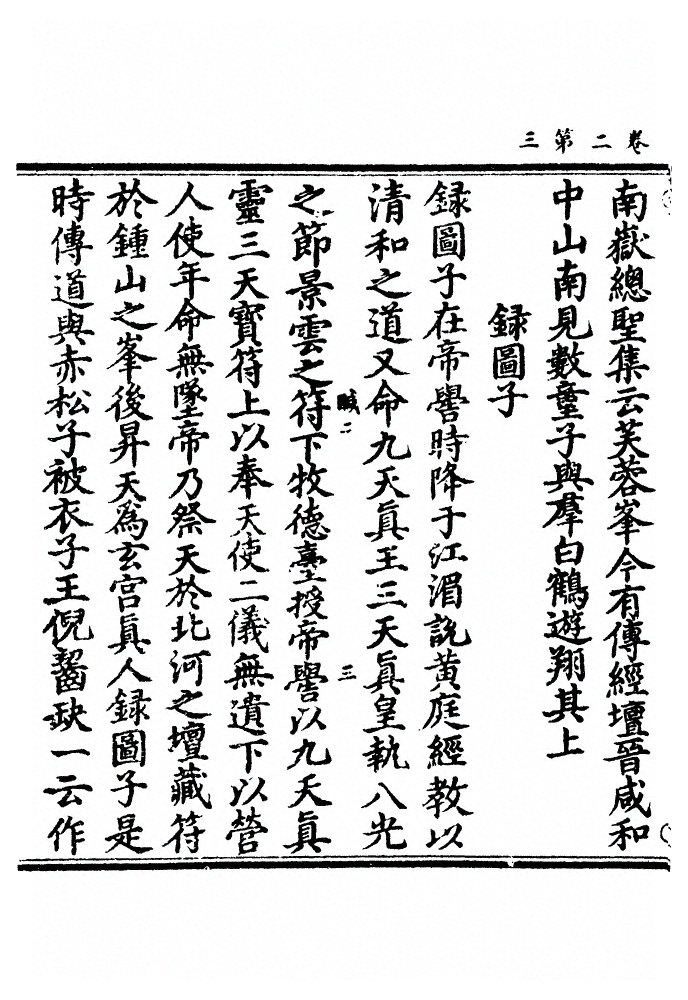 卷二第三
南嶽總聖集云芙蓉峯今有傳經壇晉咸和
中山南見數童子與羣白鶴遊翔其上
録圖子
録圖子在帝嚳時降于江湄說黄庭經教以
清和之道又命九天眞王三天眞皇執八光
之節景雲之符下牧德臺授帝嚳以九天眞
鹹二
三
靈三天寳符上以奉天使二儀無遺下以營
人使年命無墜帝乃祭天於北河之壇藏符
於鍾山之峯後昇天爲玄宫眞人録圖子是
時傳道與赤松子被衣子王倪齧缺一云作